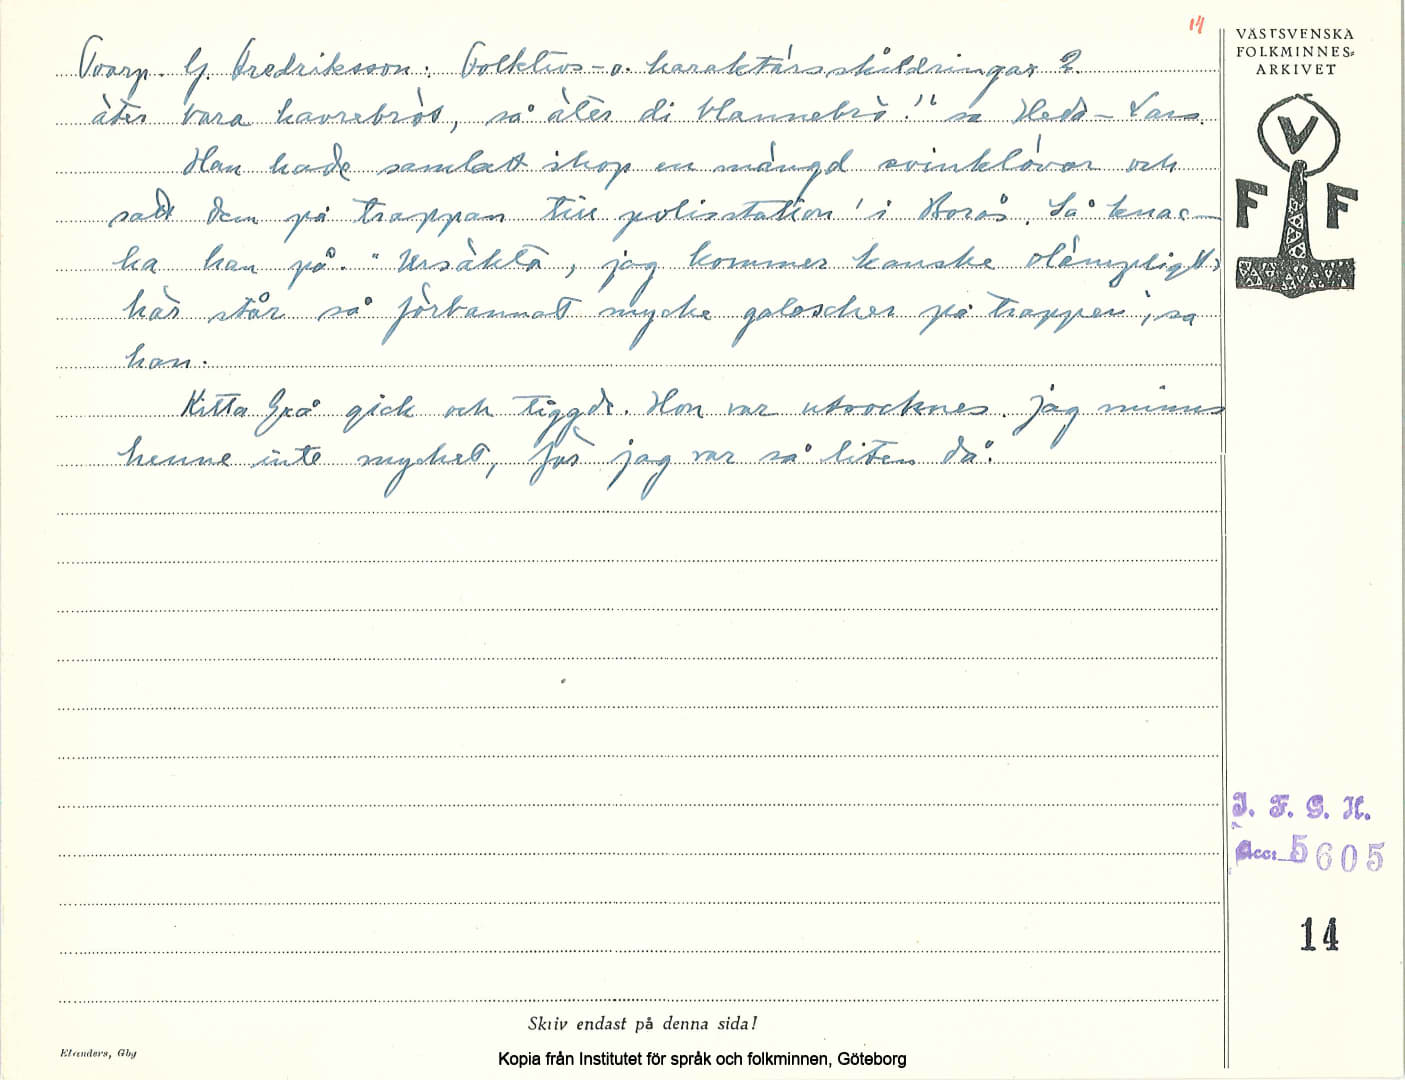 14
Toarp. G. Fredriksson: Folklivs- o. karaktärsskildringar 2.
äter bara havrebröt, så äter di blannebrö!" sa Heda-Lars.
Han hade samlatt ihop en mängd svinklövar och
satt dem på trappan till polisstation i Borås. Så knac-
ka han på. "Ursäkta, jag kommer kanske olämpligt,
här står så förbannat mycke galoscher på trappen", sa
han.
Kitta Grå gick och tiggde. Hon var utsocknes. Jag minns
henne inte mycket, för jag var så liten då.
VÄSTSVENSKA
FOLKMINNES-
ARKIVET
V
F F
I. F. G. H.
Acc: 5605
14
Skriv endast på denna sida!
Elanders, Gbg
Kopia från Institutet för språk och folkminnen, Göteborg